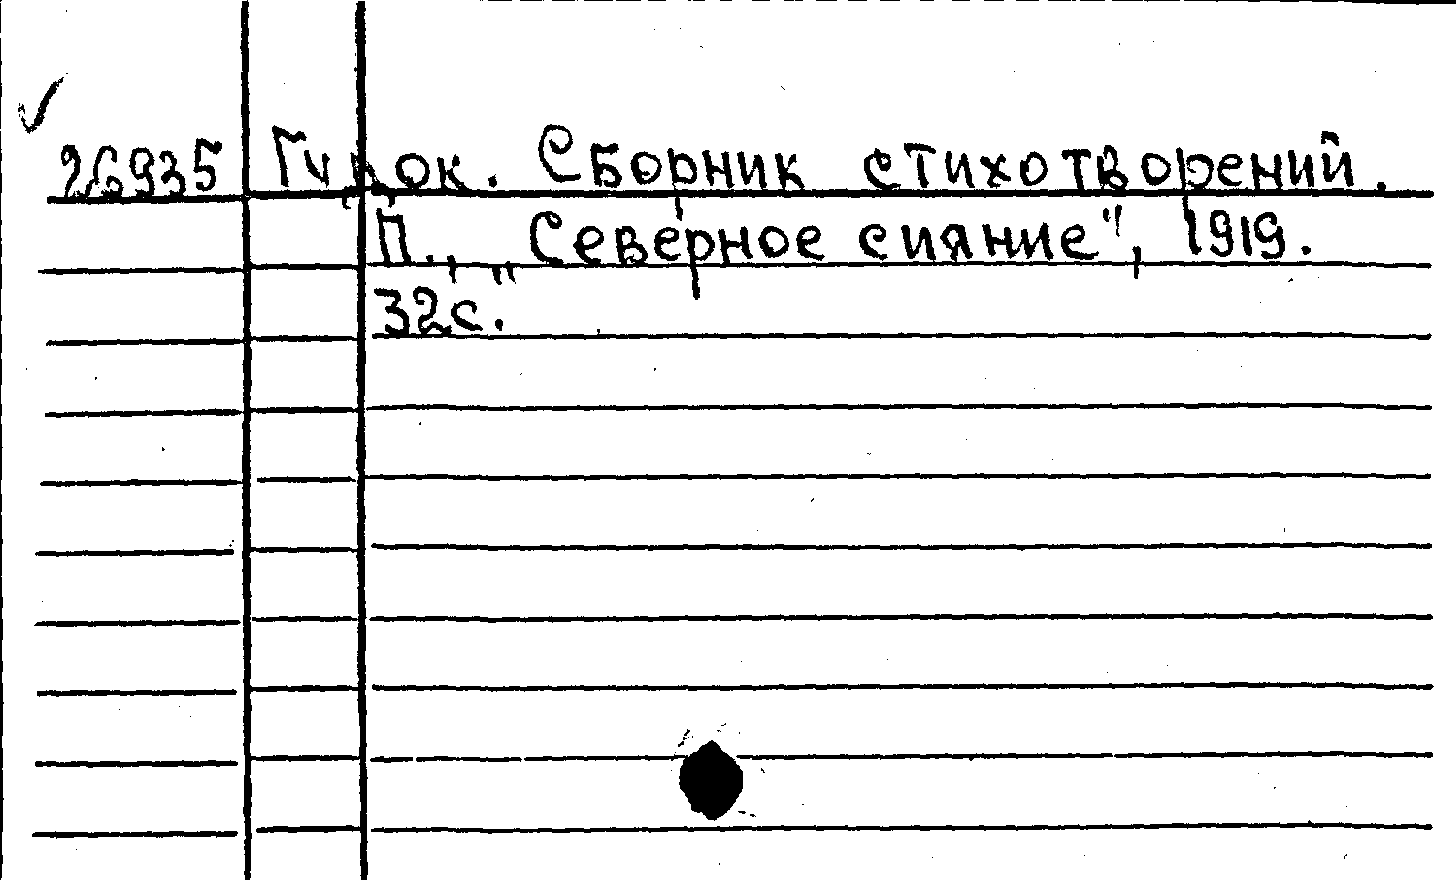 26935 Гудок. Сборник стихотворений.
П., „Северное сияние", 1919.
32с.